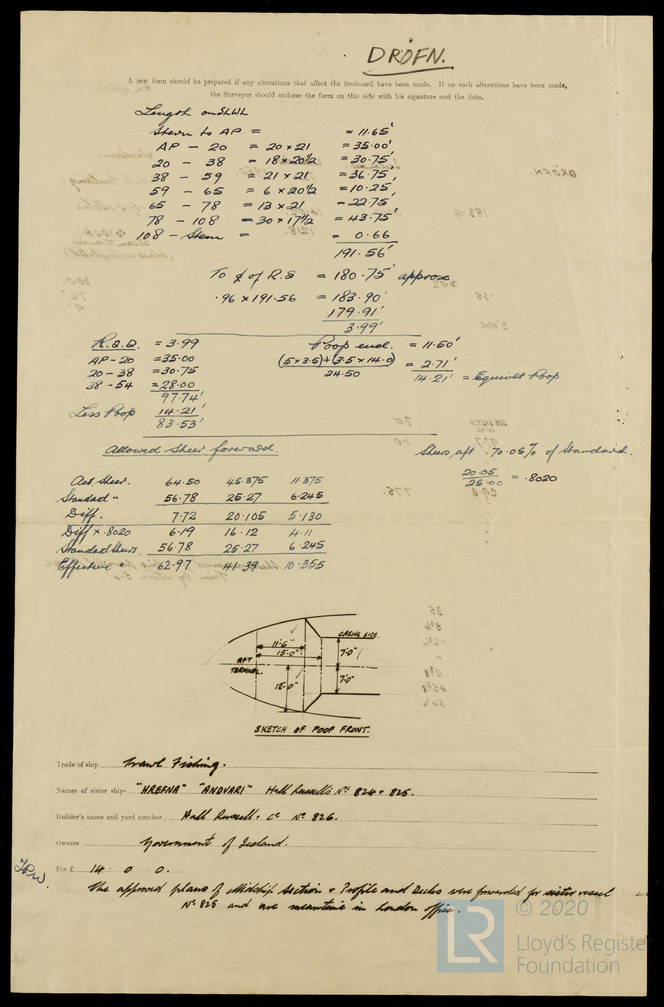 DRÖFN.
A new form should be prepared if any alterations that affect the freeboard have been made. If no such alterations have been made,
the Surveyor should endorse the form on this side with his signature and the date.
Length on SLWL
Stern to AP = = 11.65'
AP - 20 = 20 x 21 = 35.00'
20 - 38 = 18 x 20½ = 30.75'
38 - 59 = 21 x 21 = 36.75'
59 - 65 = 6 x 20½ = 10.25'
65 - 78 = 13 x 21 = 22.75'
78 - 108 = 30 x 17½ = 43.75'
108 - Stem = = 0.66
191.56'
To ₵ of R.S = 180.75' approx
.96 x 191.56 = 183.90'
179.91'
3.99'
R.Q.D. = 3.99
AP - 20 = 35.00
20 - 38 = 30.75
38 - 54 = 28.00
97.74'
Less Poop 14.21'
83.53'
Poop end. = 11.50'
(5 x 3.5) + (3.5 x 14.0) / 24.50 = 2.71'
14.21' = Equivalt Poop
Allowed Sheer forward.
Sheer aft 70.05% of Standard.
20.05 / 25.00 = .8020
Act. Sheer. 64.50 45.375 11.375
Standard " 56.78 25.27 6.245
Diff. 7.72 20.105 5.130
Diff x .8020 6.19 16.12 4.11
Standard Sheer. 56.78 25.27 6.245
Effective " 62.97 41.39 10.355
CASING SIDE.
11'-6"
15'-0"
7'-0"
AFT
TERMINAL.
12'-0"
7'-0"
SKETCH OF POOP FRONT.
Trade of ship Trawl Fishing.
Names of sister ships "HREFNA" "ANDVARI" Hall Russell's Nos 824 + 825.
Builder's name and yard number Hall Russell & Co No 826.
Owners Government of Iceland.
Fee £ 14 0 0.
The approved plans of Midship Section & Profile and Decks were forwarded for sister vessel
No 825 and are meantime in London office.
LR
© 2020
Lloyd's Register
Foundation